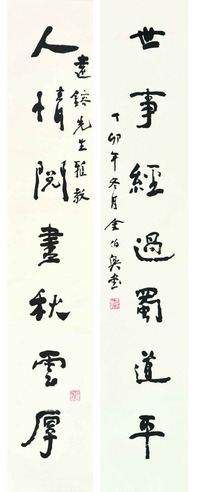 人情閱盡秋雲厚
遠鎔先生雅教
世事經過蜀道平
丁卯年冬月金伯興書